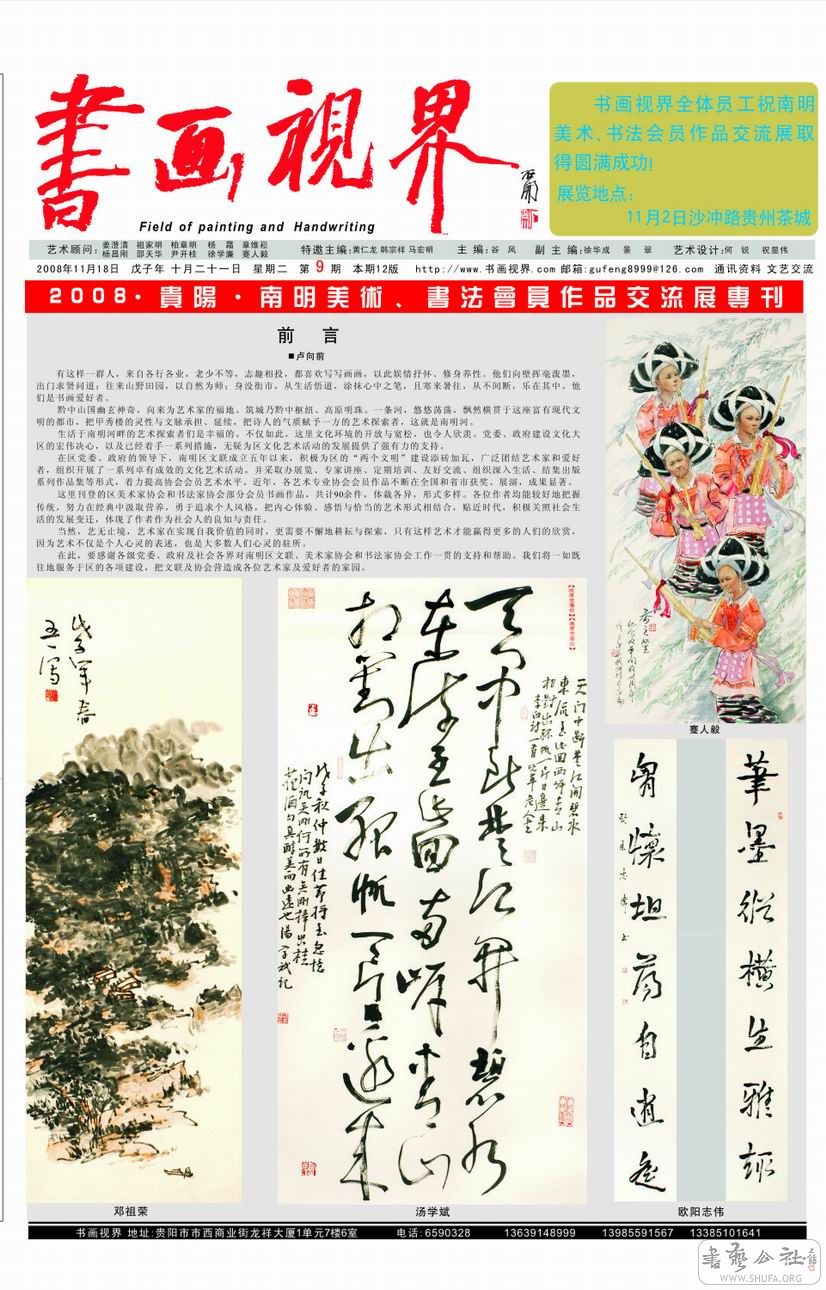 書画視界
Field of painting and Handwriting
书画视界全体员工祝南明
美术、书法会员作品交流展取
得圆满成功！
展览地点：
11月2日沙冲路贵州茶城
艺术顾问：姜澄清 祖家明 柏章明 杨霜 章维崧
杨昌刚 邵天华 尹开桂 徐学廉 蹇人毅
特邀主编：黄仁龙 韩宗祥 马宏明 主编：谷风 副主编：徐华成 景翠 艺术设计：何锐 祝显伟
2008年11月18日 戊子年 十月二十一日 星期二 第9期 本期12版 http://www.书画视界.com 邮箱:gufeng8999@126.com 通讯资料 文艺交流
2008·貴陽·南明美術、書法會員作品交流展專刊
前 言
■卢向前
有这样一群人，来自各行各业，老少不等，志趣相投，都喜欢写写画画，以此娱情抒怀、修身养性。他们向壁挥毫泼墨，
出门求贤问道；往来山野田园，以自然为师；身没街市，从生活悟道，涂抹心中之笔，且寒来暑往，从不间断，乐在其中。他
们是书画爱好者。
黔中山国幽玄神奇，向来为艺术家的福地。筑城乃黔中枢纽、高原明珠。一条河，悠悠荡荡，飘然横贯于这座富有现代文
明的都市，把甲秀楼的灵性与文脉承担、延续，把诗人的气质赋予一方的艺术探索者，这就是南明河。
生活于南明河畔的艺术探索者们是幸福的，不仅如此，这里文化环境的开放与宽松，也令人欣羡。党委、政府建设文化大
区的宏伟决心，以及已经着手一系列措施，无疑为区文化艺术活动的发展提供了强有力的支持。
在区党委、政府的领导下，南明区文联成立五年以来，积极为区的“两个文明”建设添砖加瓦，广泛团结艺术家和爱好
者，组织开展了一系列卓有成效的文化艺术活动。并采取办展览、专家讲座、定期培训、友好交流、组织深入生活、结集出版
系列作品集等形式，着力提高协会会员艺术水平，近年，各艺术专业协会会员作品不断在全国和省市获奖、展演，成果显著。
这里刊登的区美术家协会和书法家协会部分会员书画作品，共计90余件，体裁各异，形式多样。各位作者均能较好地把握
传统，努力在经典中汲取营养，勇于追求个人风格，把内心体验、感悟与恰当的艺术形式相结合，贴近时代，积极关照社会生
活的发展变迁，体现了作者作为社会人的良知与责任。
当然，艺无止境，艺术家在实现自我价值的同时，更需要不懈地耕耘与探索，只有这样艺术才能赢得更多的人们的欣赏，
因为艺术不仅是个人心灵的表述，也是大多数人们心灵的驻所。
在此，要感谢各级党委、政府及社会各界对南明区文联、美术家协会和书法家协会工作一贯的支持和帮助。我们将一如既
往地服务于区的各项建设，把文联及协会营造成各位艺术家及爱好者的家园。
蹇人毅
戊子年春
五一写
天门中断楚江开碧水
东流至此回两岸青山
相对出孤帆一片日边来
天门中断楚江開碧水
東流至此回两岸青山
相對出孤帆一片日邊来
筆墨縱横生雅趣
胸懷坦蕩自逍遥
邓祖荣
汤学斌
欧阳志伟
书画视界 地址:贵阳市市西商业街龙祥大厦1单元7楼6室 电话:6590328 13639148999 13985591567 13385101641
書藝公社
WWW.SHUFA.ORG